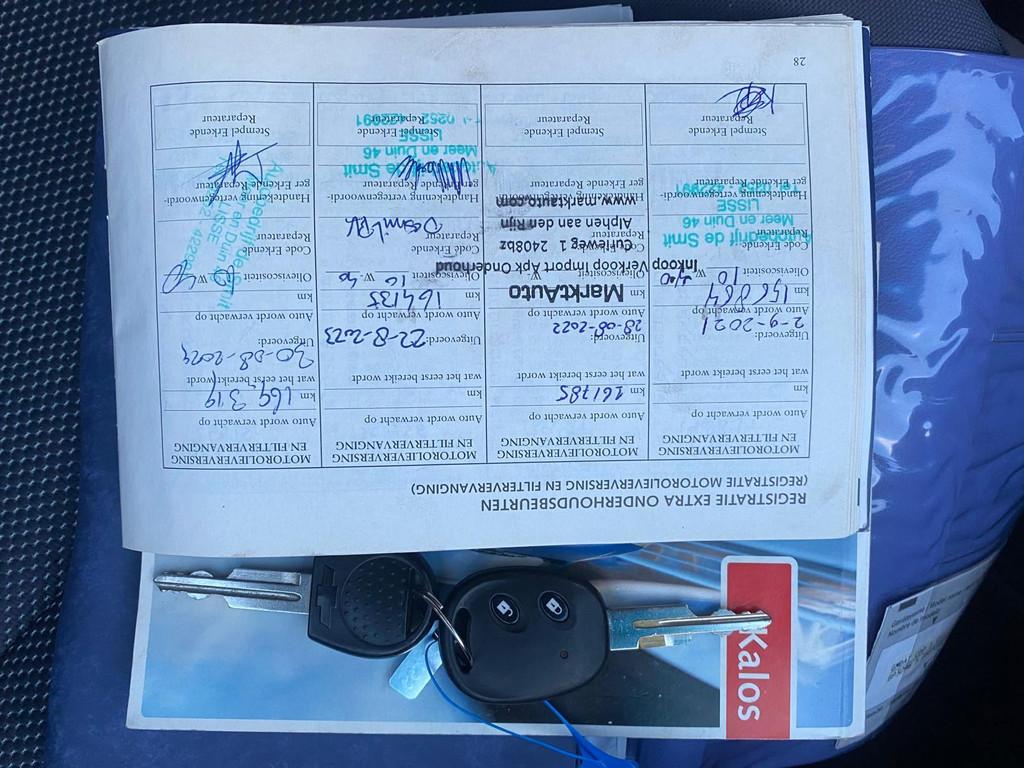 REGISTRATIE EXTRA ONDERHOUDSBEURTEN
(REGISTRATIE MOTOROLIEVERVERSING EN FILTERVERVANGING)
MOTOROLIEVERVERSING
EN FILTERVERVANGING
Auto wordt verwacht op
km
wat het eerst bereikt wordt
Uitgevoerd:
2-9-2021
Auto wordt verwacht op
km 156864
Olieviscositeit 10 W. 40
Code Erkende
Reparateur
Autobedrijf de Smit
Meer en Duin 46
LISSE
Tel. 0252-422991
Handelskenteken vertegenwoordi-
ger Erkende Reparateur
Stempel Erkende
Reparateur
MOTOROLIEVERVERSING
EN FILTERVERVANGING
Auto wordt verwacht op
km 161785
wat het eerst bereikt wordt
Uitgevoerd:
28-08-2022
Auto wordt verwacht op
km
MarktAuto
Olieviscositeit W.
Inkoop Verkoop Import Apk Onderhoud
Curieweg 1 2408bz
Alphen aan den Rijn
www.marktauto.com
ger Erkende Reparateur
Stempel Erkende
Reparateur
MOTOROLIEVERVERSING
EN FILTERVERVANGING
Auto wordt verwacht op
km
wat het eerst bereikt wordt
Uitgevoerd: 22-8-2023
Auto wordt verwacht op
km 164135
Olieviscositeit 10 W. 40
Code Erkende
Reparateur
ger Erkende Reparateur
Autobedrijf de Smit
Meer en Duin 46
LISSE
Tel. 0252 422991
Stempel Erkende
Reparateur
MOTOROLIEVERVERSING
EN FILTERVERVANGING
Auto wordt verwacht op
km 169.319
wat het eerst bereikt wordt
Uitgevoerd:
20-08-2024
Auto wordt verwacht op
km
Olieviscositeit W. 40
Code Erkende
Reparateur
ger Erkende Reparateur
Autobedrijf de Smit
Meer en Duin 46
LISSE
Stempel Erkende
Reparateur
28
Kalos